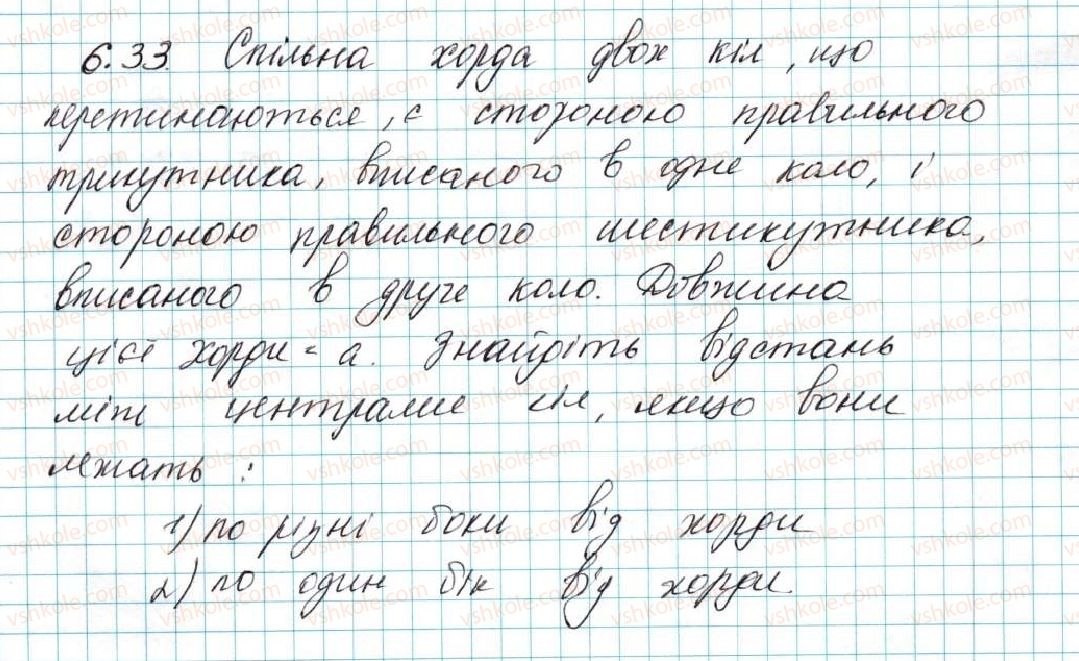 6.33. Спільна хорда двох кіл, що
перетинаються, є стороною правильного
трикутника, вписаного в одне коло, і
стороною правильного шестикутника,
вписаного в друге коло. Довжина
цієї хорди = а. Знайдіть відстань
між центрами кіл, якщо вони
лежать :
1) по різні боки від хорди
2) по один бік від хорди.